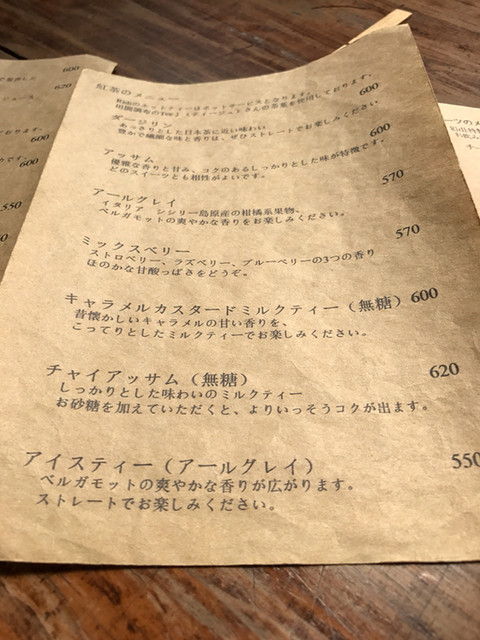 紅茶のメニュー
Kidiのホットティーはポットサービスとなります。
ダージリン 600
あっさりとした日本茶に近い味わい
豊かで繊細な味と香りは、ぜひストレートでお楽しみください
アッサム 600
優雅な香りと甘み、コクのあるしっかりとした味が特徴です。
どのスイーツとも相性がよいです。
アールグレイ 570
イタリア シシリー島原産の柑橘系果物、
ベルガモットの爽やかな香りをお楽しみください。
ミックスベリー 570
ストロベリー、ラズベリー、ブルーベリーの3つの香り
ほのかな甘酸っぱさをどうぞ。
キャラメルカスタードミルクティー（無糖） 600
昔懐かしいキャラメルの甘い香りを、
こってりとしたミルクティーでお楽しみください。
チャイアッサム（無糖） 620
しっかりとした味わいのミルクティー
お砂糖を加えていただくと、よりいっそうコクが出ます。
アイスティー（アールグレイ） 550
ベルガモットの爽やかな香りが広がります。
ストレートでお楽しみください。
600
620
600
600
550